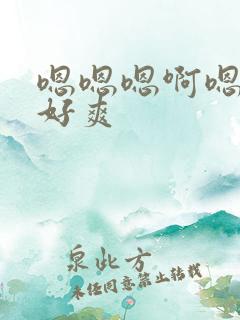 嗯嗯嗯啊嗯
好爽
泉此方
未经同意禁止转载